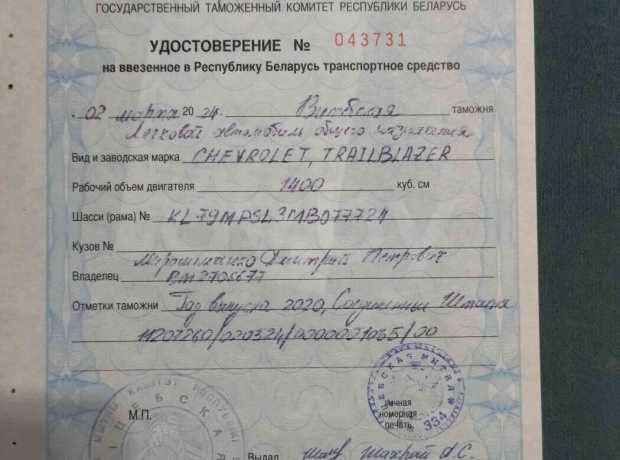 ГОСУДАРСТВЕННЫЙ ТАМОЖЕННЫЙ КОМИТЕТ РЕСПУБЛИКИ БЕЛАРУСЬ
УДОСТОВЕРЕНИЕ № 043731
на ввезенное в Республику Беларусь транспортное средство
" 02 " марта 2024. Витебская таможня
Легковой автомобиль общего назначения
Вид и заводская марка CHEVROLET, TRAILBLAZER
Рабочий объем двигателя 1400 куб. см
Шасси (рама) № KL79MPSL3MB077724
Кузов №
Мирошниченко Дмитрий Петрович
Владелец BM2705677
Отметки таможни Год выпуска 2020, Соединенные Штаты
11207260/020324/0000021065/00
М.П.
личная
номерная
печать
МЫТНЫ КАМІТЭТ РЭСПУБЛІКІ
ВІЦЕБСКАЯ
ВІЦЕБСКАЯ МЫТНЯ
№ 334
Выдал